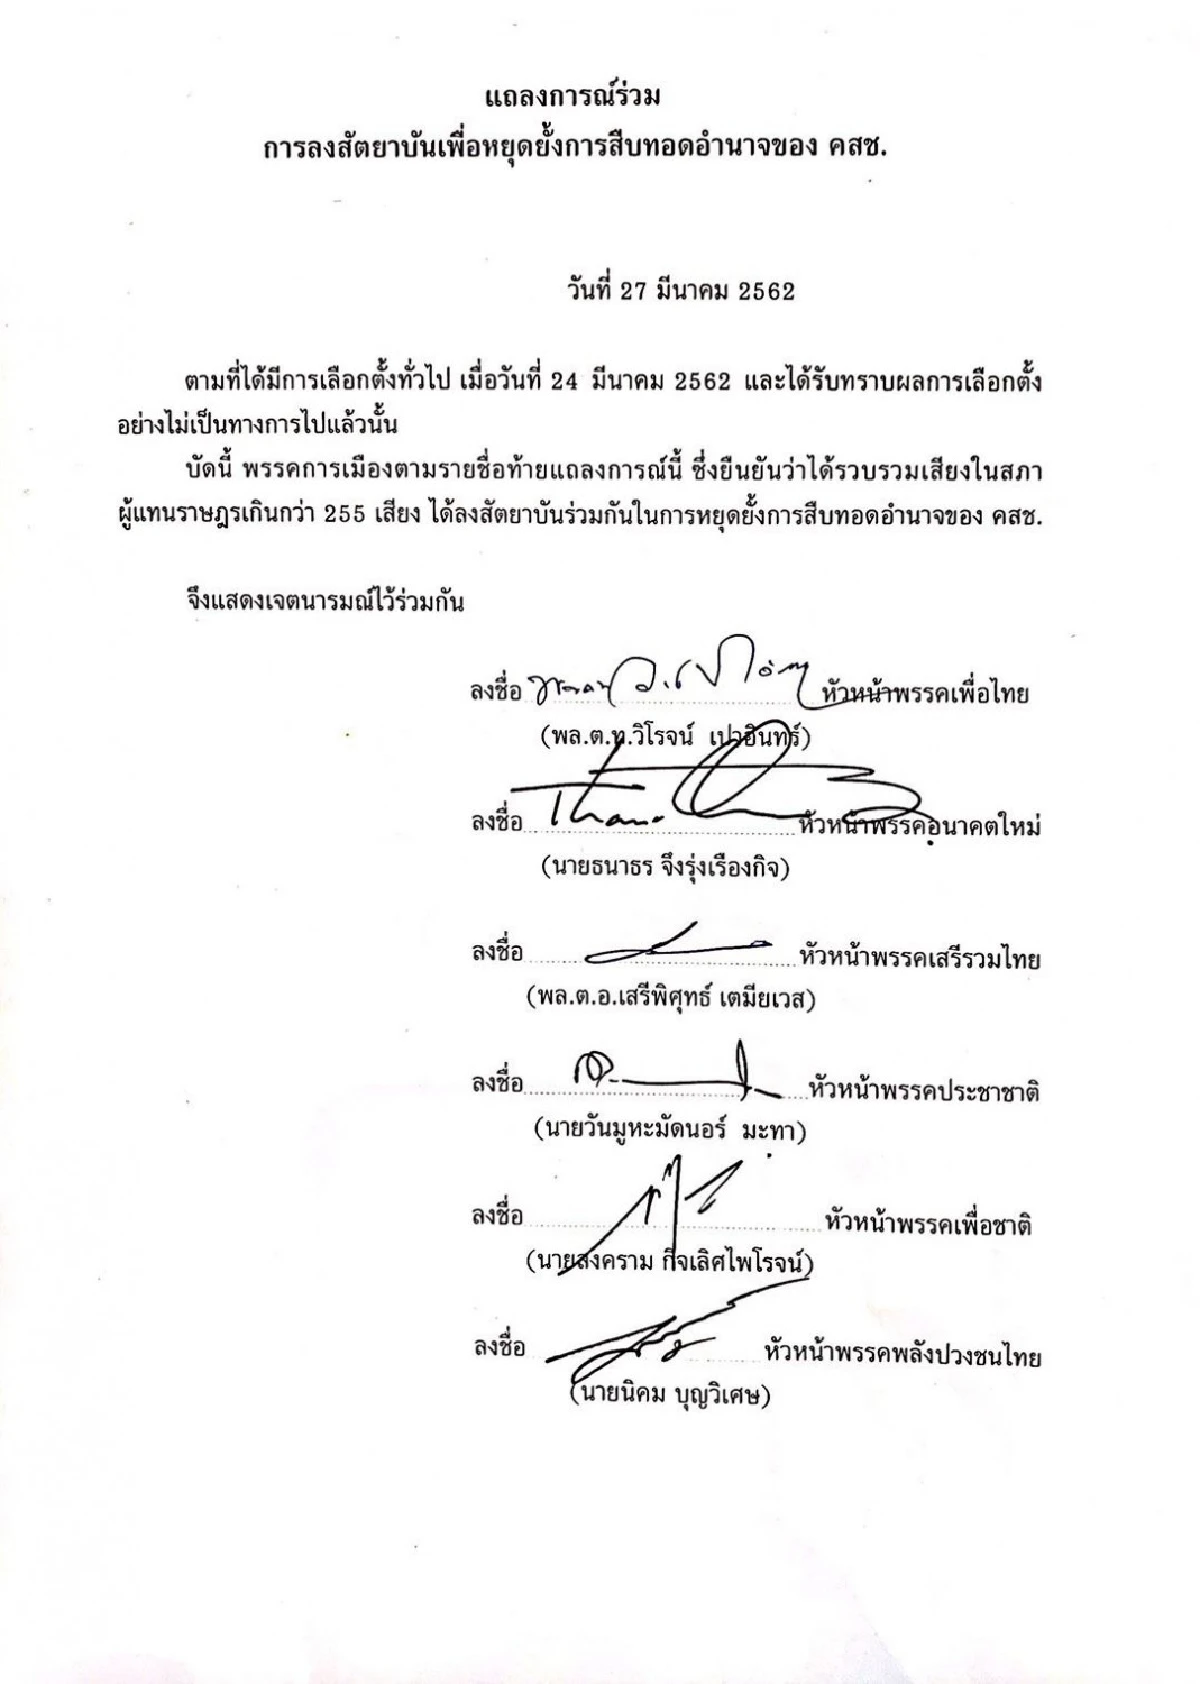 แถลงการณ์ร่วม
การลงสัตยาบันเพื่อหยุดยั้งการสืบทอดอำนาจของ คสช.
วันที่ 27 มีนาคม 2562
ตามที่ได้มีการเลือกตั้งทั่วไป เมื่อวันที่ 24 มีนาคม 2562 และได้รับทราบผลการเลือกตั้ง
อย่างไม่เป็นทางการไปแล้วนั้น
บัดนี้ พรรคการเมืองตามรายชื่อท้ายแถลงการณ์นี้ ซึ่งยืนยันว่าได้รวบรวมเสียงในสภา
ผู้แทนราษฎรเกินกว่า 255 เสียง ได้ลงสัตยาบันร่วมกันในการหยุดยั้งการสืบทอดอำนาจของ คสช.
จึงแสดงเจตนารมณ์ไว้ร่วมกัน
ลงชื่อ หัวหน้าพรรคเพื่อไทย
(พล.ต.ท.วิโรจน์ เปาอินทร์)
ลงชื่อ หัวหน้าพรรคอนาคตใหม่
(นายธนาธร จึงรุ่งเรืองกิจ)
ลงชื่อ หัวหน้าพรรคเสรีรวมไทย
(พล.ต.อ.เสรีพิศุทธ์ เตมียเวส)
ลงชื่อ หัวหน้าพรรคประชาชาติ
(นายวันมูหะมัดนอร์ มะทา)
ลงชื่อ หัวหน้าพรรคเพื่อชาติ
(นายสงคราม กิจเลิศไพโรจน์)
ลงชื่อ หัวหน้าพรรคพลังปวงชนไทย
(นายนิคม บุญวิเศษ)